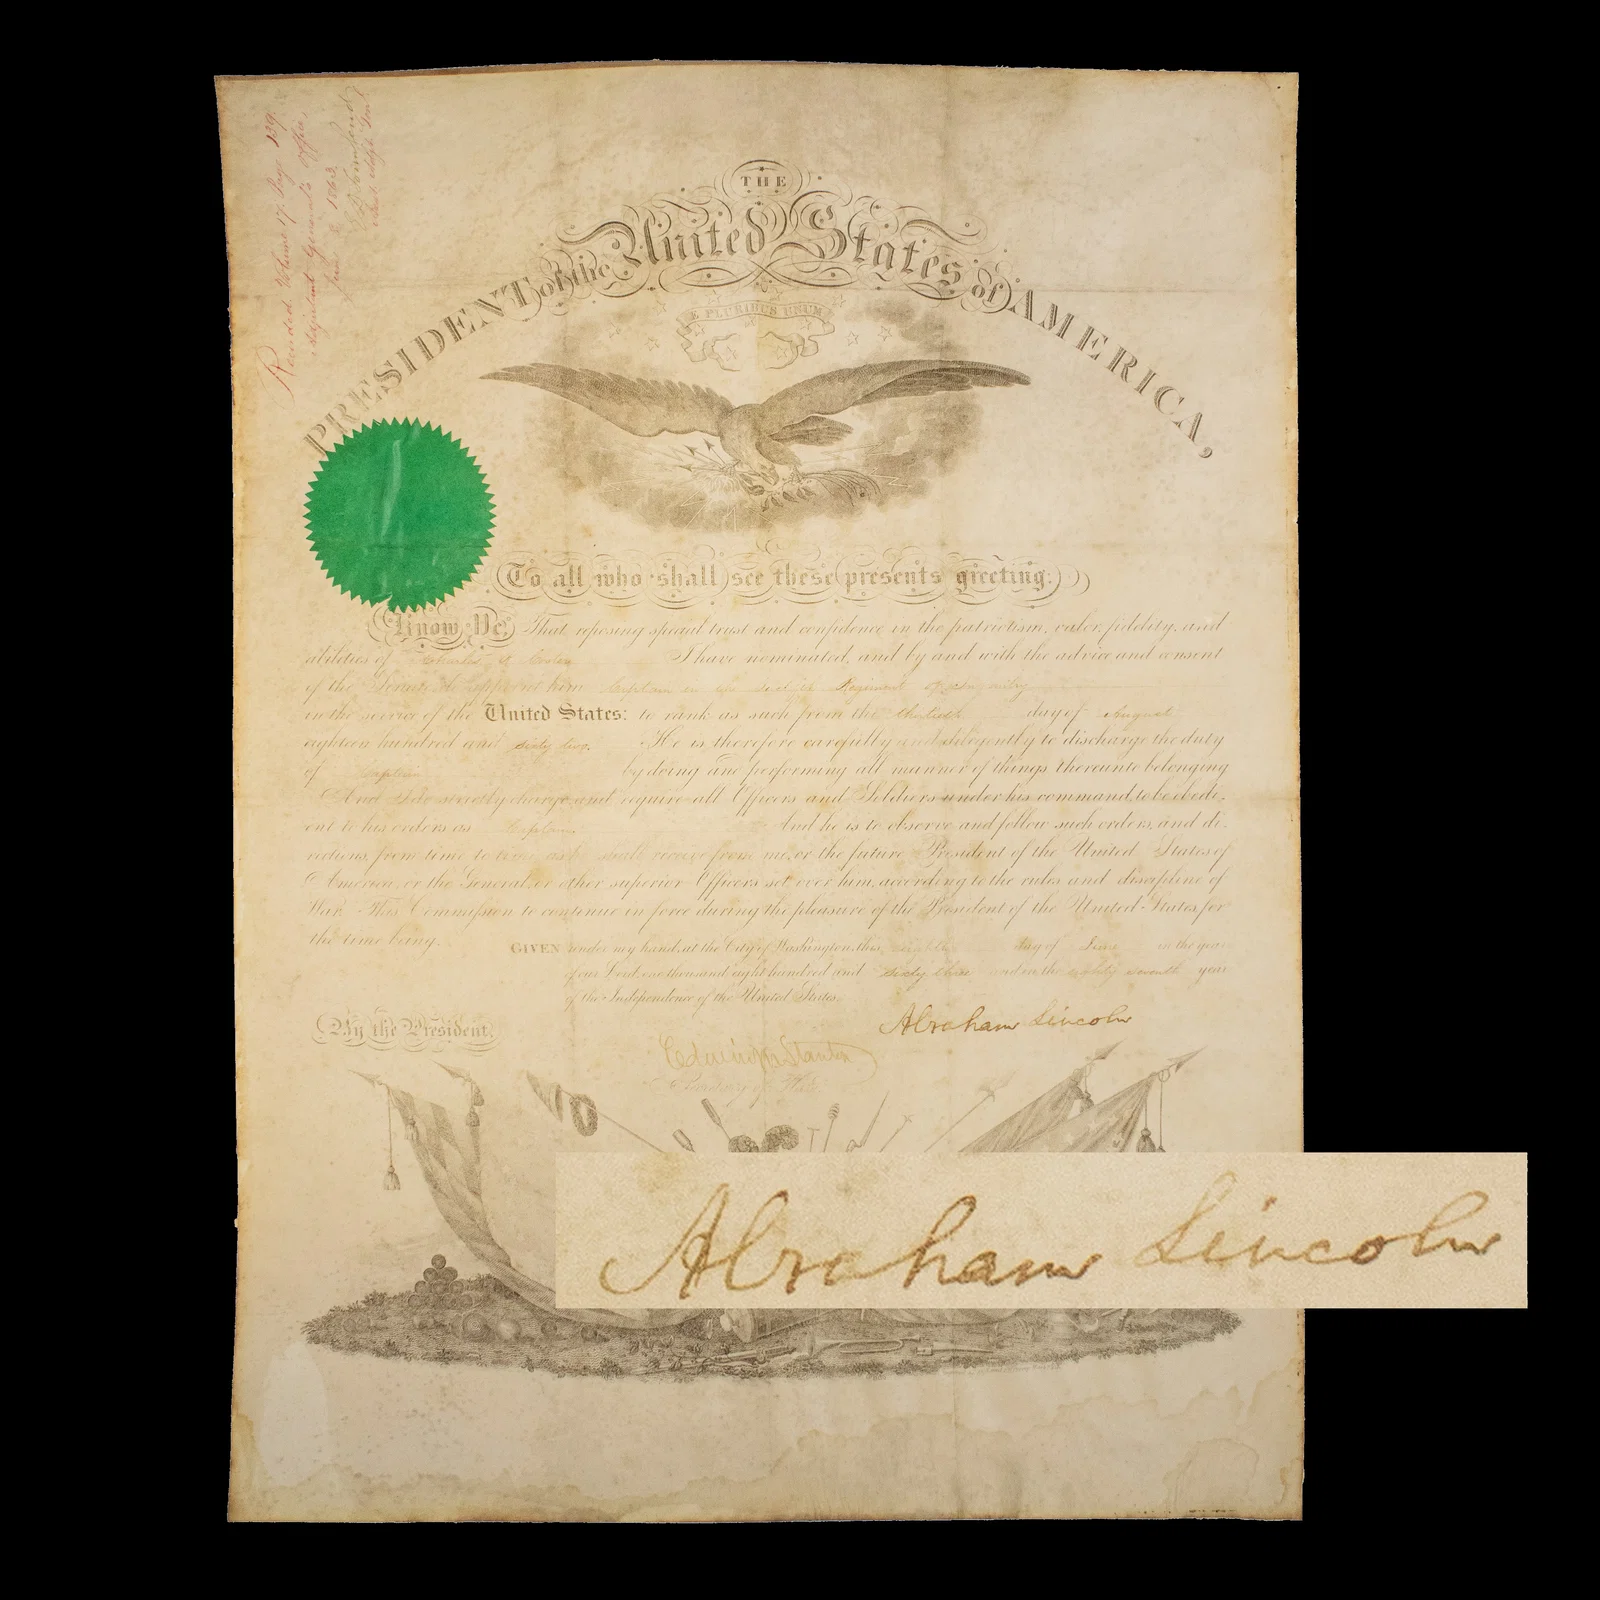 Recorded Volume 17 Page 139
Adjutant General's Office,
June 1863
Asst Adjt Genl
THE
PRESIDENT of the United States of AMERICA,
E PLURIBUS UNUM
To all who shall see these presents greeting:
Know Ye, That reposing special trust and confidence in the patriotism, valor, fidelity, and
abilities of Charles I have nominated, and by and with the advice and consent
of the Senate do appoint him Captain in the Regiment of Infantry
in the service of the United States: to rank as such from the thirtieth day of August
eighteen hundred and sixty two. He is therefore carefully and diligently to discharge the duty
of Captain by doing and performing all manner of things thereunto belonging
And I do strictly charge and require all Officers and Soldiers under his command, to be obedi-
ent to his orders as Captain And he is to observe and follow such orders, and di-
rections, from time to time, as he shall receive from me, or the future President of the United States of
America, or the General, or other superior Officers set over him, according to the rules and discipline of
War. This Commission to continue in force during the pleasure of the President of the United States, for
the time being.
GIVEN under my hand, at the City of Washington, this eighth day of June in the year
of our Lord, one thousand eight hundred and sixty three and in the eighty seventh year
of the Independence of the United States.
Abraham Lincoln
By the President,
Edwin M Stanton
Secretary of War
Abraham Lincoln